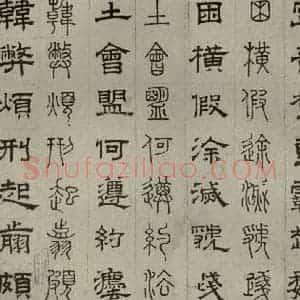 困橫假途滅虢踐
困橫假涂滅虢踐
土會盟何遵約法
土會盟何遵約灋
韓弊煩刑起翦頗
韓弊煩刑起翦頗
Shufaziliao.com